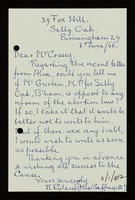 39 Fox Hill,
Selly Oak,
Birmingham 29
8th June/66.
Dear Mr Cossey
Regarding the recent letter
from Alra, could you tell me
if Mr Gurden, M.P. for Selly
Oak, B'ham, is opposed to any
reform of the abortion law?
If so, I take it it would be
better not to write to him.
But if there is any doubt,
I would wish to write as soon
as possible.
Thanking you in advance
& wishing all success to the
cause.
Yours sincerely